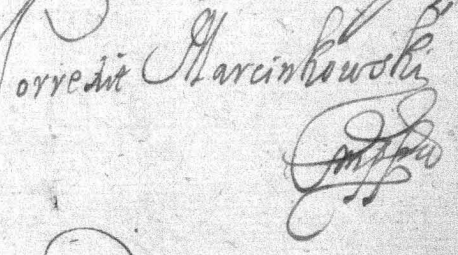 Correxit Marcinkowski
mppa